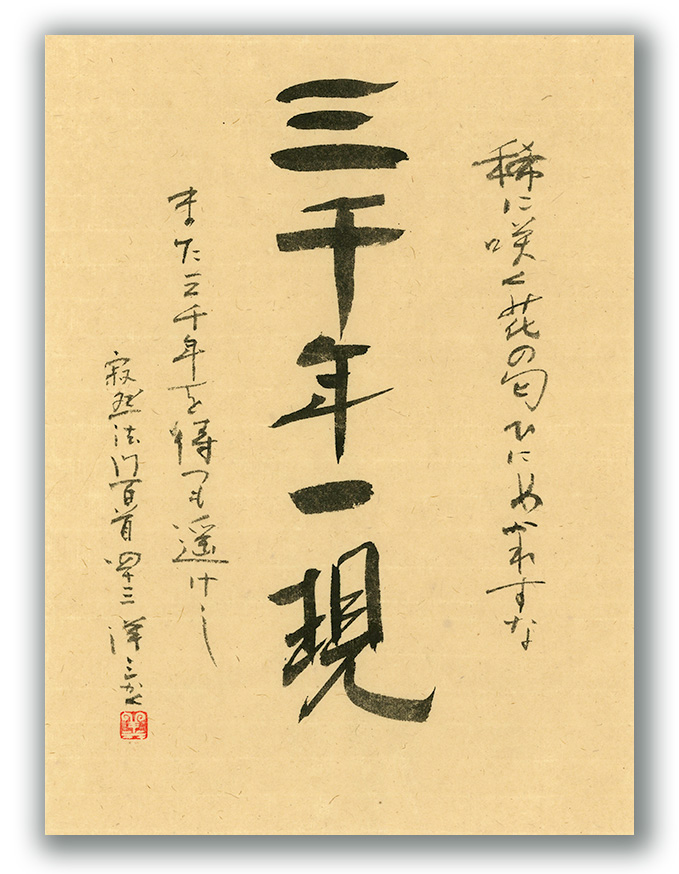 稀に咲く花の匂ひにめかれすな
三千年一現
また三千年を待つも遥けし
寂然法門百首 四十三 洋三かく